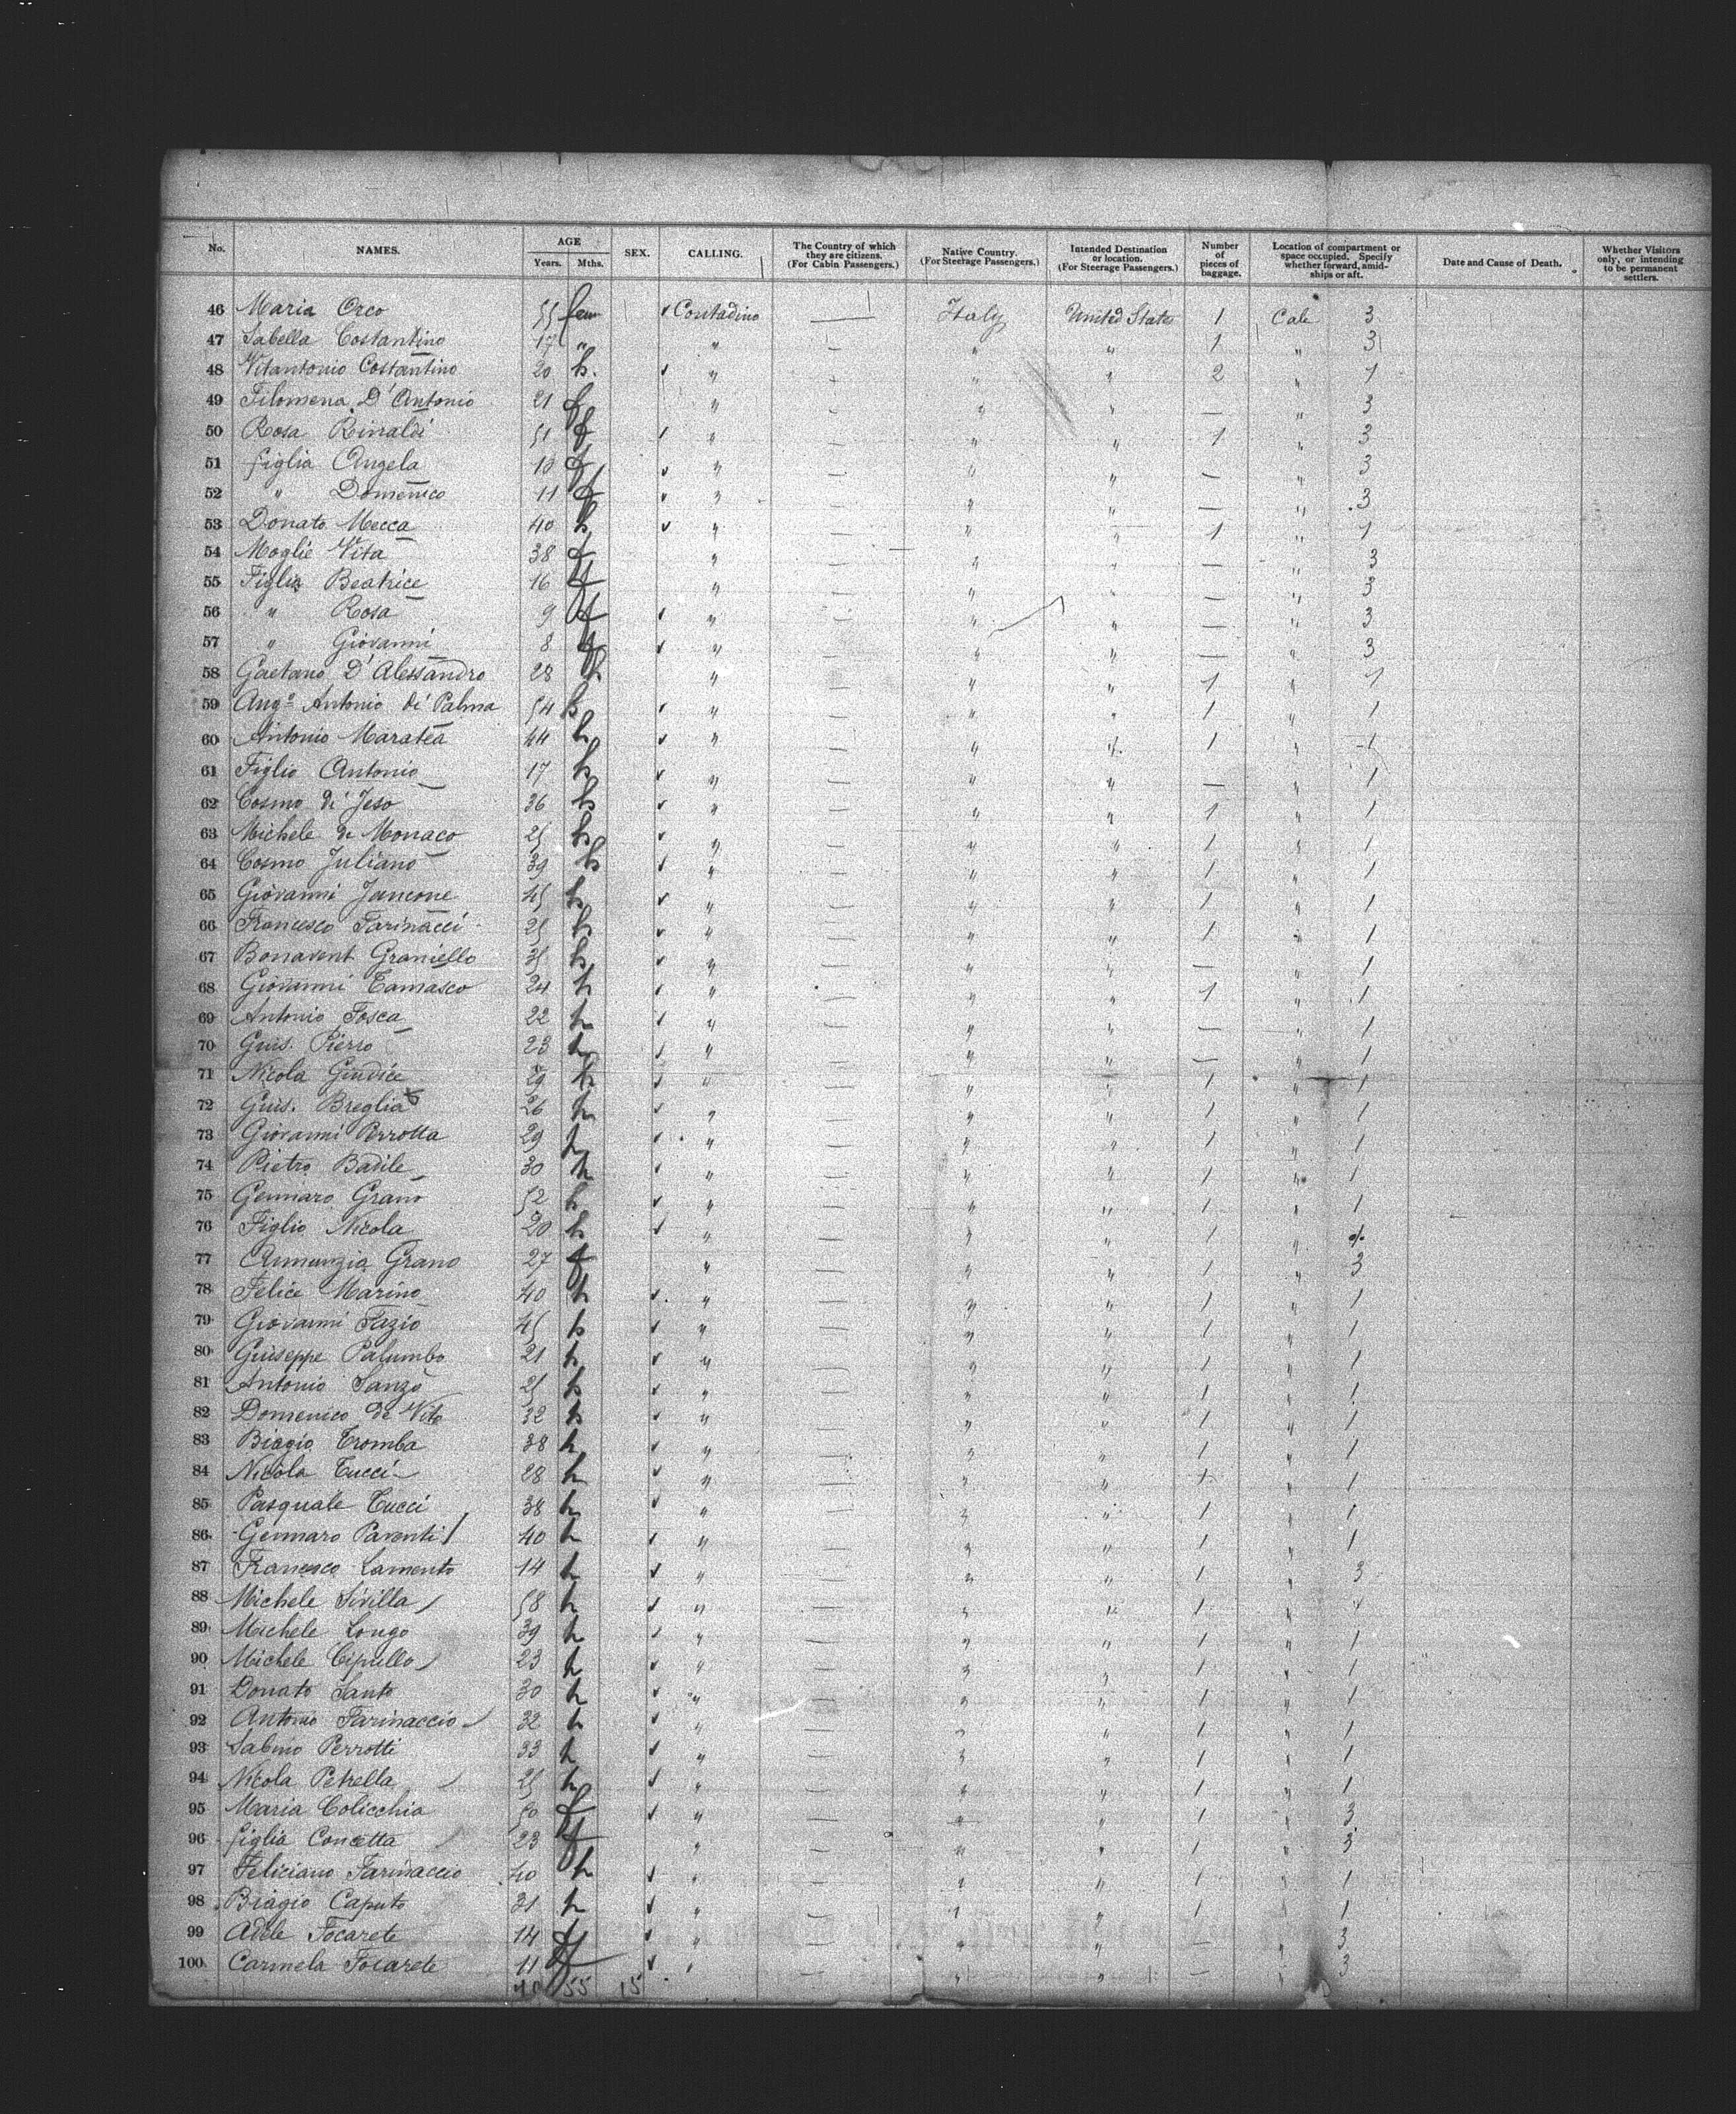 No. NAMES. AGE Years. Mths. SEX. CALLING. The Country of which they are citizens. (For Cabin Passengers.) Native Country. (For Steerage Passengers.) Intended Destination or location. (For Steerage Passengers.) Number of pieces of baggage. Location of compartment or space occupied. Specify whether forward, amidships or aft. Date and Cause of Death. Whether Visitors only, or intending to be permanent settlers.
46 Maria Orco 55 fem Contadino — Italy United States 1 Cale 3
47 Sabella Costantino 17 " " — " " 1 " 3
48 Vitantonio Costantino 20 h. " — " " 2 " 1
49 Filomena D'Antonio 21 f " — " " — " 3
50 Rosa Rinaldi 51 f " — " " 1 " 3
51 figlia Angela 10 f " — " " — " 3
52 " Domenico 11 f " — " " — " 3
53 Donato Mecca 40 h " — " " 1 " 1
54 Moglie Vita 38 f " — " " — " 3
55 Figlia Beatrice 16 f " — " " — " 3
56 " Rosa 9 f " — " " — " 3
57 " Giovanni 8 f " — " " — " 3
58 Gaetano D'Alessandro 28 h " — " " 1 " 1
59 Angº Antonio di Palma 54 h " — " " 1 " 1
60 Antonio Maratea 44 h " — " " 1 " 1
61 Figlio Antonio 17 h " — " " — " 1
62 Cosmo di Jeso 36 h " — " " 1 " 1
63 Michele de Monaco 25 h " — " " 1 " 1
64 Cosmo Juliano 39 h " — " " 1 " 1
65 Giovanni Jancone 45 h " — " " 1 " 1
66 Francesco Farinacci 25 h " — " " 1 " 1
67 Bonavent Graniello 35 h " — " " — " 1
68 Giovanni Tamasco 24 h " — " " 1 " 1
69 Antonio Fosca 22 h " — " " — " 1
70 Guis. Pierro 23 h " — " " — " 1
71 Nicola Giudice 29 h " — " " 1 " 1
72 Guis. Breglia 26 h " — " " 1 " 1
73 Giovanni Perrotta 29 h " — " " 1 " 1
74 Pietro Badile 30 h " — " " 1 " 1
75 Gennaro Grano 52 h " — " " 1 " 1
76 Figlio Nicola 20 h " — " " 1 "
77 Annunzia Grano 27 f " — " " 1 " 3
78 Felice Marino 40 h " — " " 1 " 1
79 Giovanni Fazio 45 h " — " " 1 " 1
80 Giuseppe Palumbo 21 h " — " " 1 " 1
81 Antonio Sanzo 25 h " — " " 1 " 1
82 Domenico de Vito 32 h " — " " 1 " 1
83 Biagio Tromba 38 h " — " " 1 " 1
84 Nicola Tucci 28 h " — " " 1 " 1
85 Pasquale Tucci 38 h " — " " 1 " 1
86 Gennaro Paventi 40 h " — " " 1 " 1
87 Francesco Lamento 14 h " — " " 1 " 3
88 Michele Sivilla 58 h " — " " 1 "
89 Michele Longo 39 h " — " " 1 " 1
90 Michele Cipullo 23 h " — " " 1 " 1
91 Donato Santo 30 h " — " " 1 " 1
92 Antonio Farinaccio 32 h " — " " 1 " 1
93 Sabino Perrotti 33 h " — " " 1 " 1
94 Nicola Petrella 25 h " — " " 1 " 1
95 Maria Colicchia 50 f " — " " 1 " 3
96 figlia Concetta 23 f " — " " 1 " 3
97 Feliciano Farinaccio 40 h " — " " 1 " 1
98 Biagio Caputo 31 h " — " " 1 " 1
99 Adele Focarete 14 f " — " " — " 3
100 Carmela Focarete 11 f " — " " — " 3
55 15